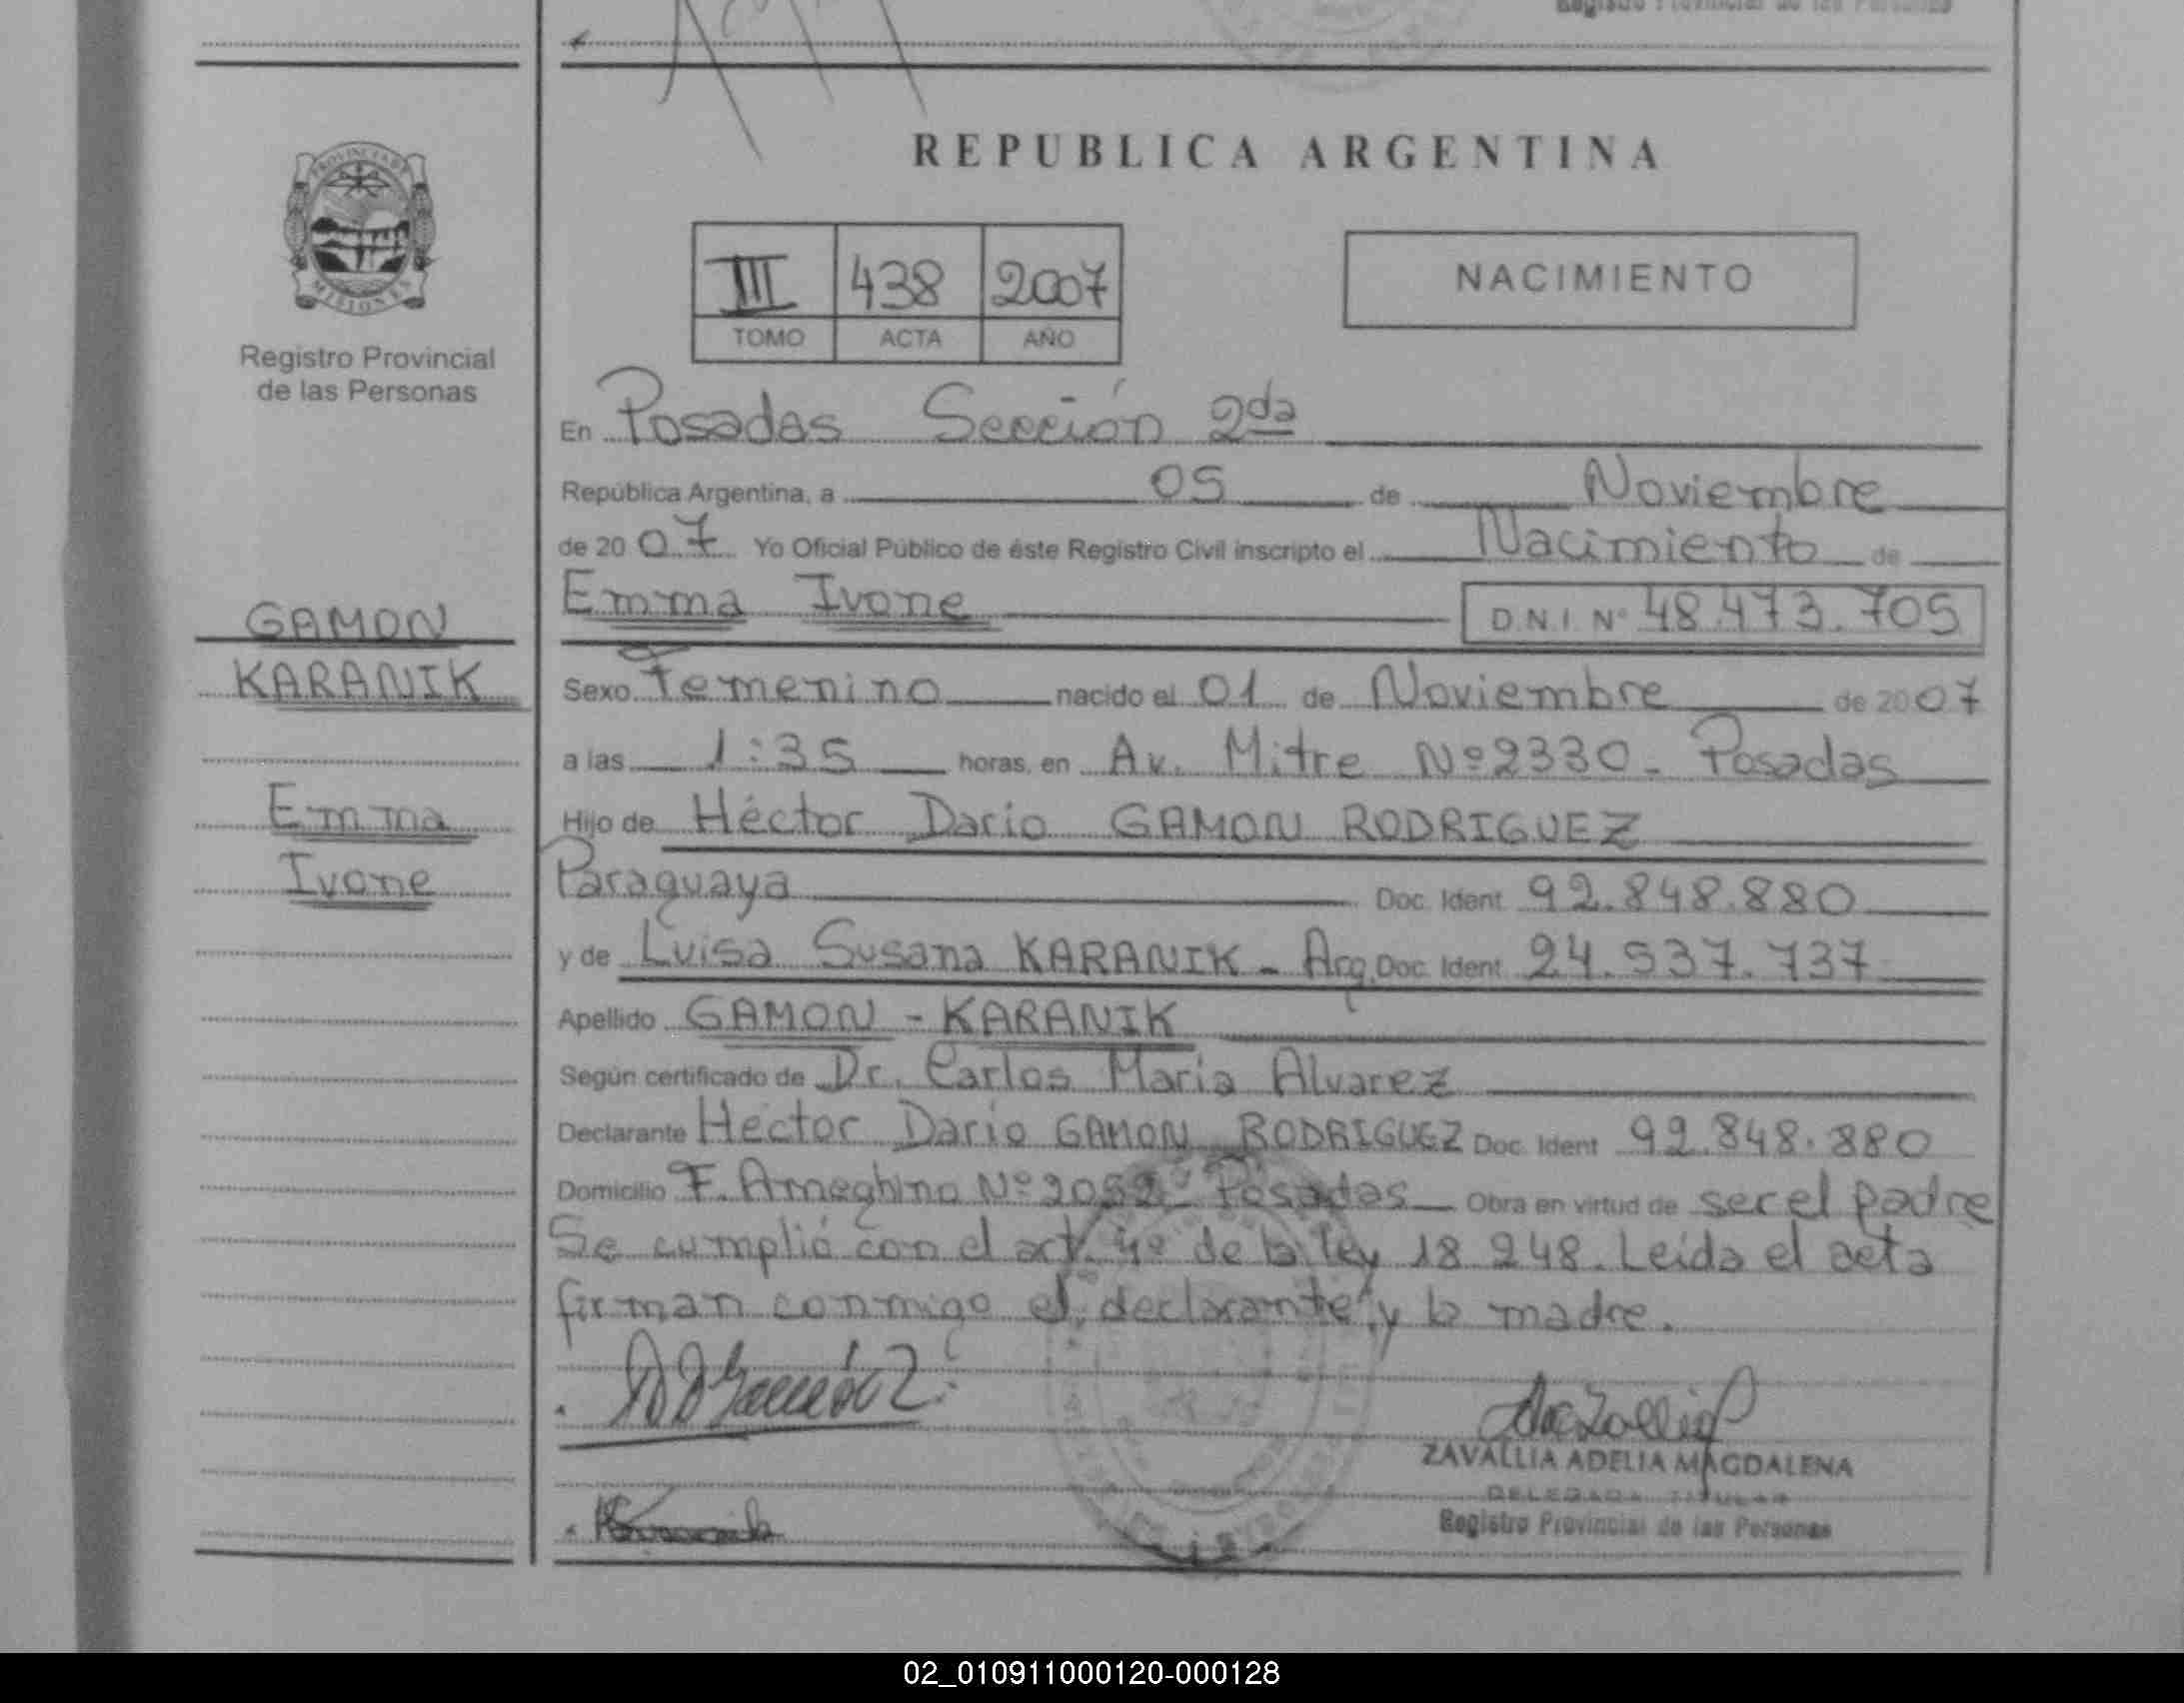 Registro Provincial de las Personas
REPUBLICA ARGENTINA
PROVINCIA DE
MISIONES
Registro Provincial
de las Personas
III 438 2007
TOMO ACTA AÑO
NACIMIENTO
En Posadas Sección 2da
República Argentina, a 05 de Noviembre
de 2007 Yo Oficial Público de éste Registro Civil inscripto el Nacimiento de
GAMON
Emma Ivone D.N.I. Nº 48.473.705
KARANIK
Sexo Femenino nacido el 01 de Noviembre de 2007
a las 1:35 horas, en Av. Mitre Nº 2330 - Posadas
Emma
Hijo de Héctor Dario GAMON RODRIGUEZ
Ivone
Paraguaya Doc. Ident. 92.848.880
y de Luisa Susana KARANIK - Arg. Doc. Ident. 24.537.737
Apellido GAMON - KARANIK
Según certificado de Dr. Carlos Maria Alvarez
Declarante Hector Dario GAMON RODRIGUEZ Doc. Ident. 92.848.880
Domicilio F. Ameghino Nº 2052 - Posadas Obra en virtud de ser el padre
Se cumplió con el art. 4º de la ley 18 248. Leida el acta
firman conmigo el declarante y la madre.
ZAVALLIA ADELIA MAGDALENA
DELEGADA TITULAR
Registro Provincial de las Personas
02_010911000120-000128